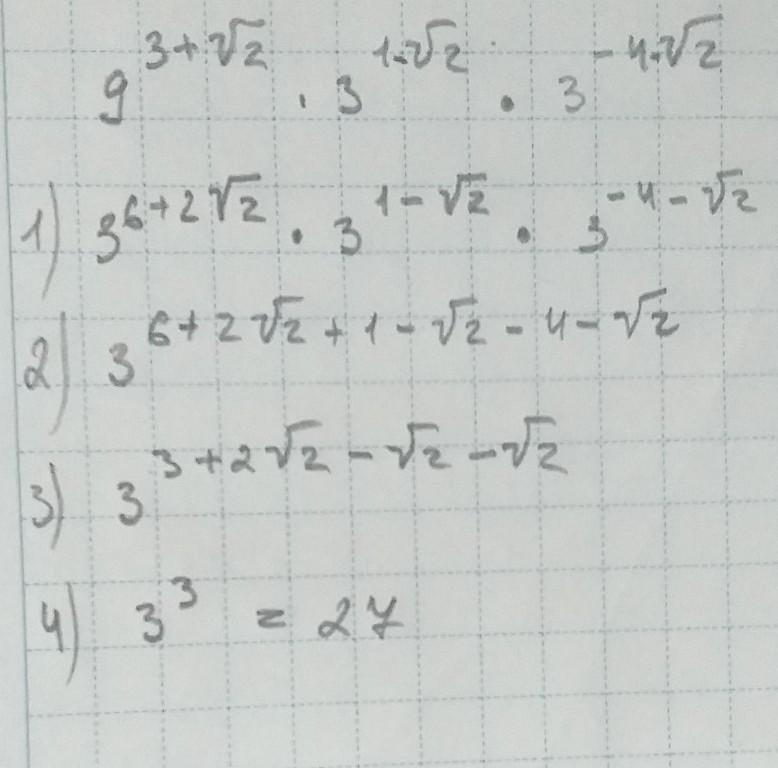 9^{3+√2} · 3^{1-√2} · 3^{-4-√2}
1) 3^{6+2√2} · 3^{1-√2} · 3^{-4-√2}
2) 3^{6+2√2+1-√2-4-√2}
3) 3^{3+2√2-√2-√2}
4) 3^3 = 27